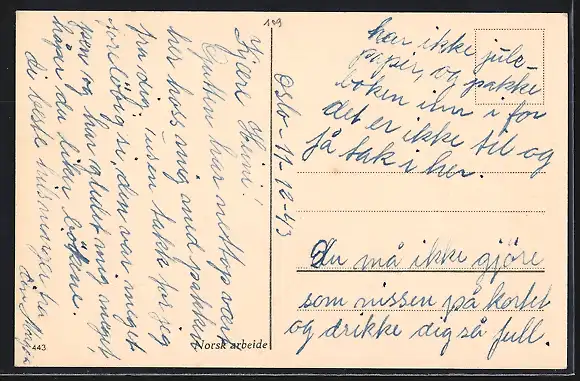 109
Oslo - 11-12-43
Kjære Hunni!
Gutten har nettop vært
her hoss mig med pakken
fra dig, tusen takk får jeg
foreløbig si, den var meget
pen og har gledet mig meget,
håper du liker bökene.
di beste hilsninger fra
din
har ikke jule-
papir, og pakke
boken inn i for
det er ikke til og
få tak i her.
Du må ikke gjöre
som nissen på kortet
og drikke dig så full.
443
Norsk arbeide